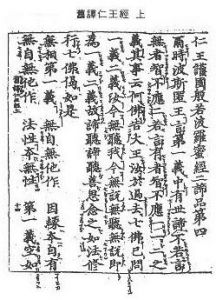 舊譯仁王經 上
仁王護國般若波羅蜜經二諦品第四
爾時波斯匿王言第一義中有世諦不若言
無者智不應二若言有者智不應一一二之
義其事云何佛告大王汝於過去七佛已問
一義二義汝今無聽我今無說無聽無說即
為一義二義故諦聽諦聽善思念之如法修
行七佛偈如是
無相第一義 無自無他作 因緣本自有
無自無他作 法性本無性 第一義空如